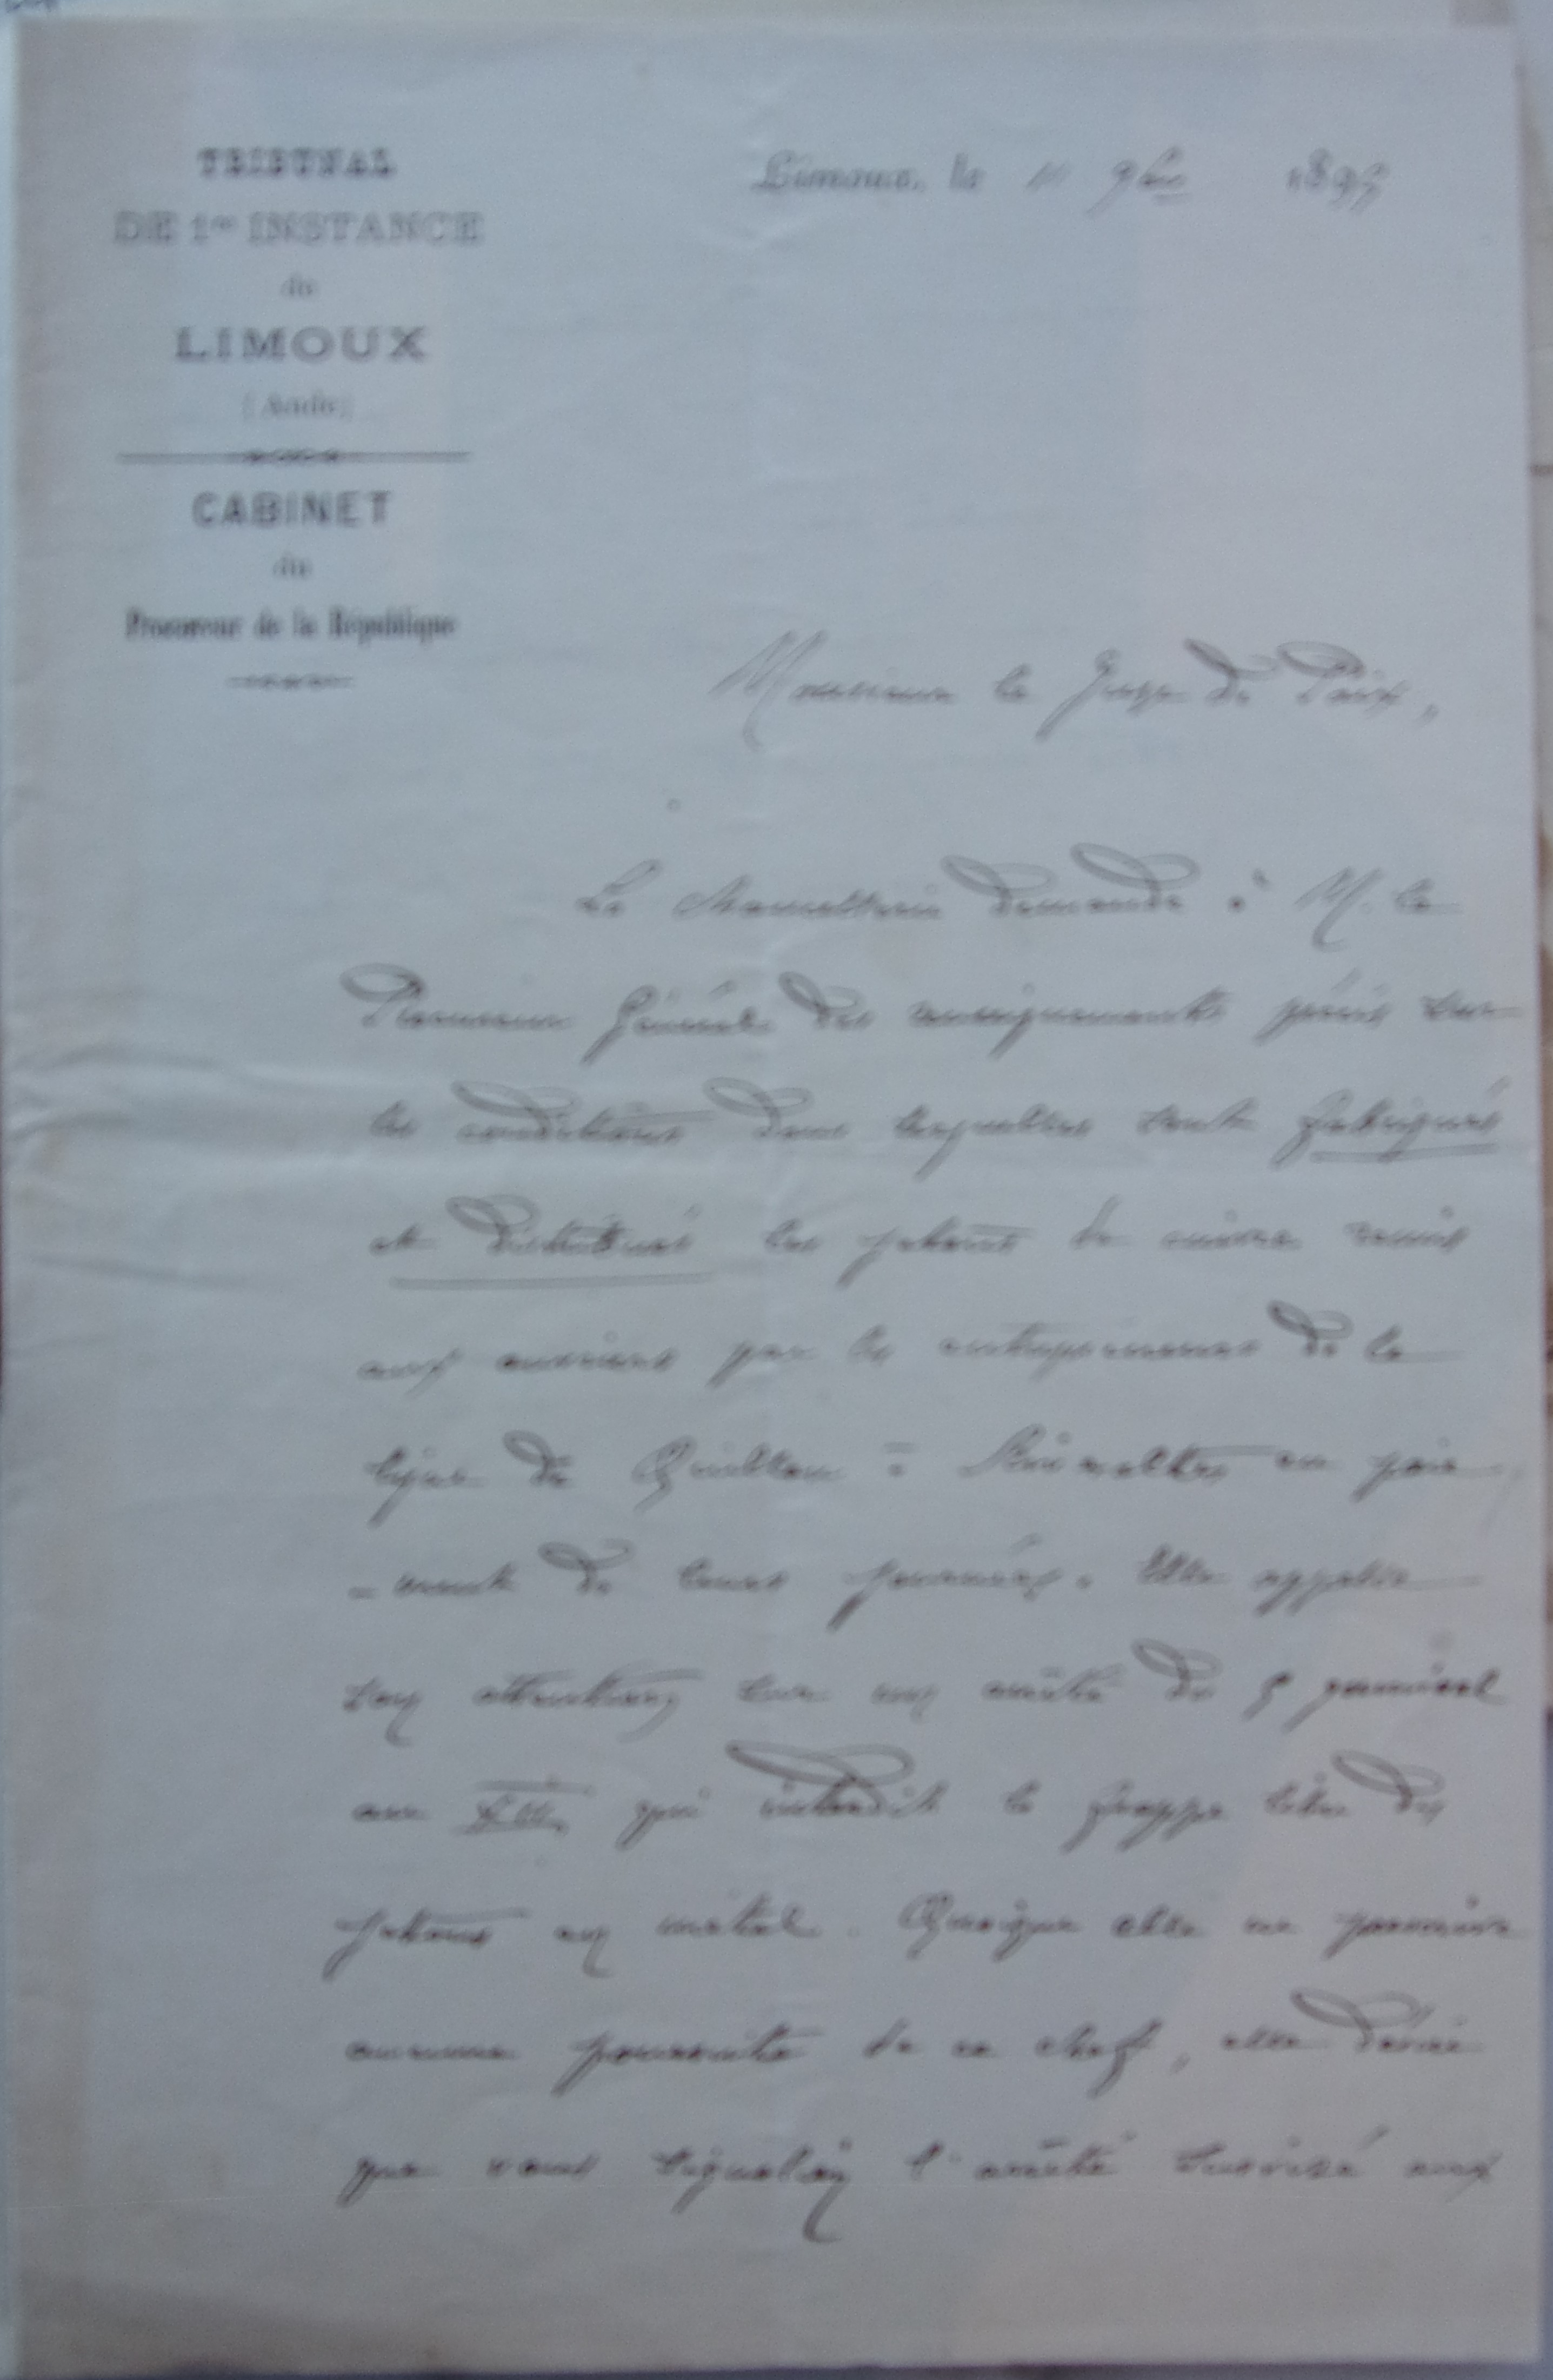 TRIBUNAL
DE 1re INSTANCE
de
LIMOUX
(Aude)
CABINET
du
Procureur de la République
Limoux, le 11 9bre 189
Monsieur le Juge de Paix,
La Chancellerie demande à M. le
Procureur Général des renseignements précis sur
les conditions dans lesquelles sont fabriqués
et distribués les jetons de cuivre remis
aux ouvriers par les entrepreneurs de la
ligne de Quillan à Rivesaltes en paie
-ment de leurs journées. Elle appelle
son attention sur un arrêté du 5 germinal
an XII, qui interdit la frappe libre des
jetons en métal. Quoique elle ne prescrive
aucune poursuite de ce chef, elle désire
que vous signaliez l'arrêté susvisé aux